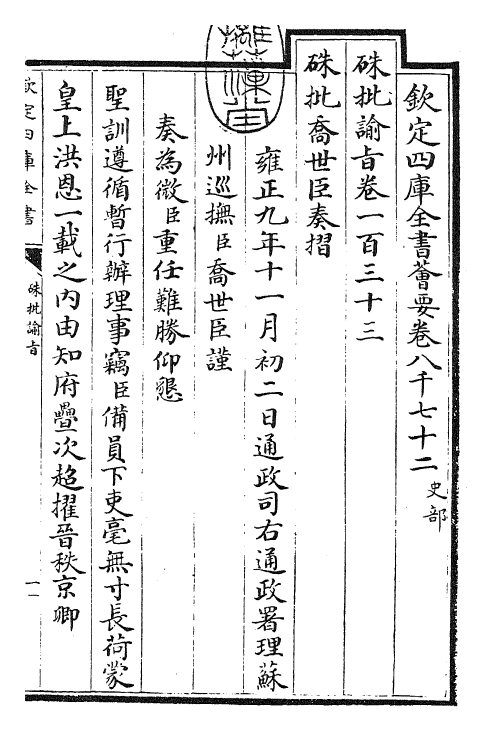 欽定四庫全書薈要卷八千七十二 史部
硃批諭旨卷一百三十三
硃批喬世臣奏摺
雍正九年十一月初二日通政司右通政署理蘇
州巡撫臣喬世臣謹
奏為微臣重任難勝仰懇
聖訓遵循暫行辦理事竊臣備員下吏毫無寸長荷蒙
皇上洪恩一載之內由知府疊次超擢晉秩京卿
欽定四庫全書
硃批諭旨
一